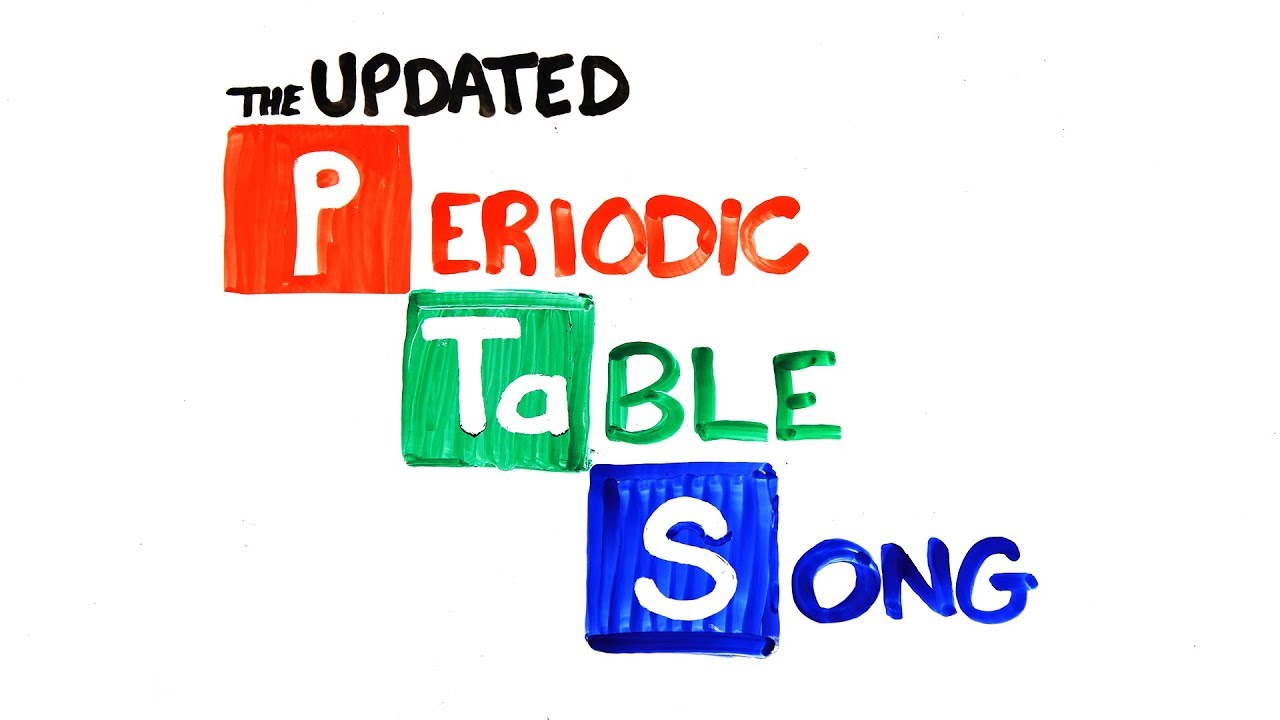 THE UPDATED
PERIODIC
TaBLE
SONG